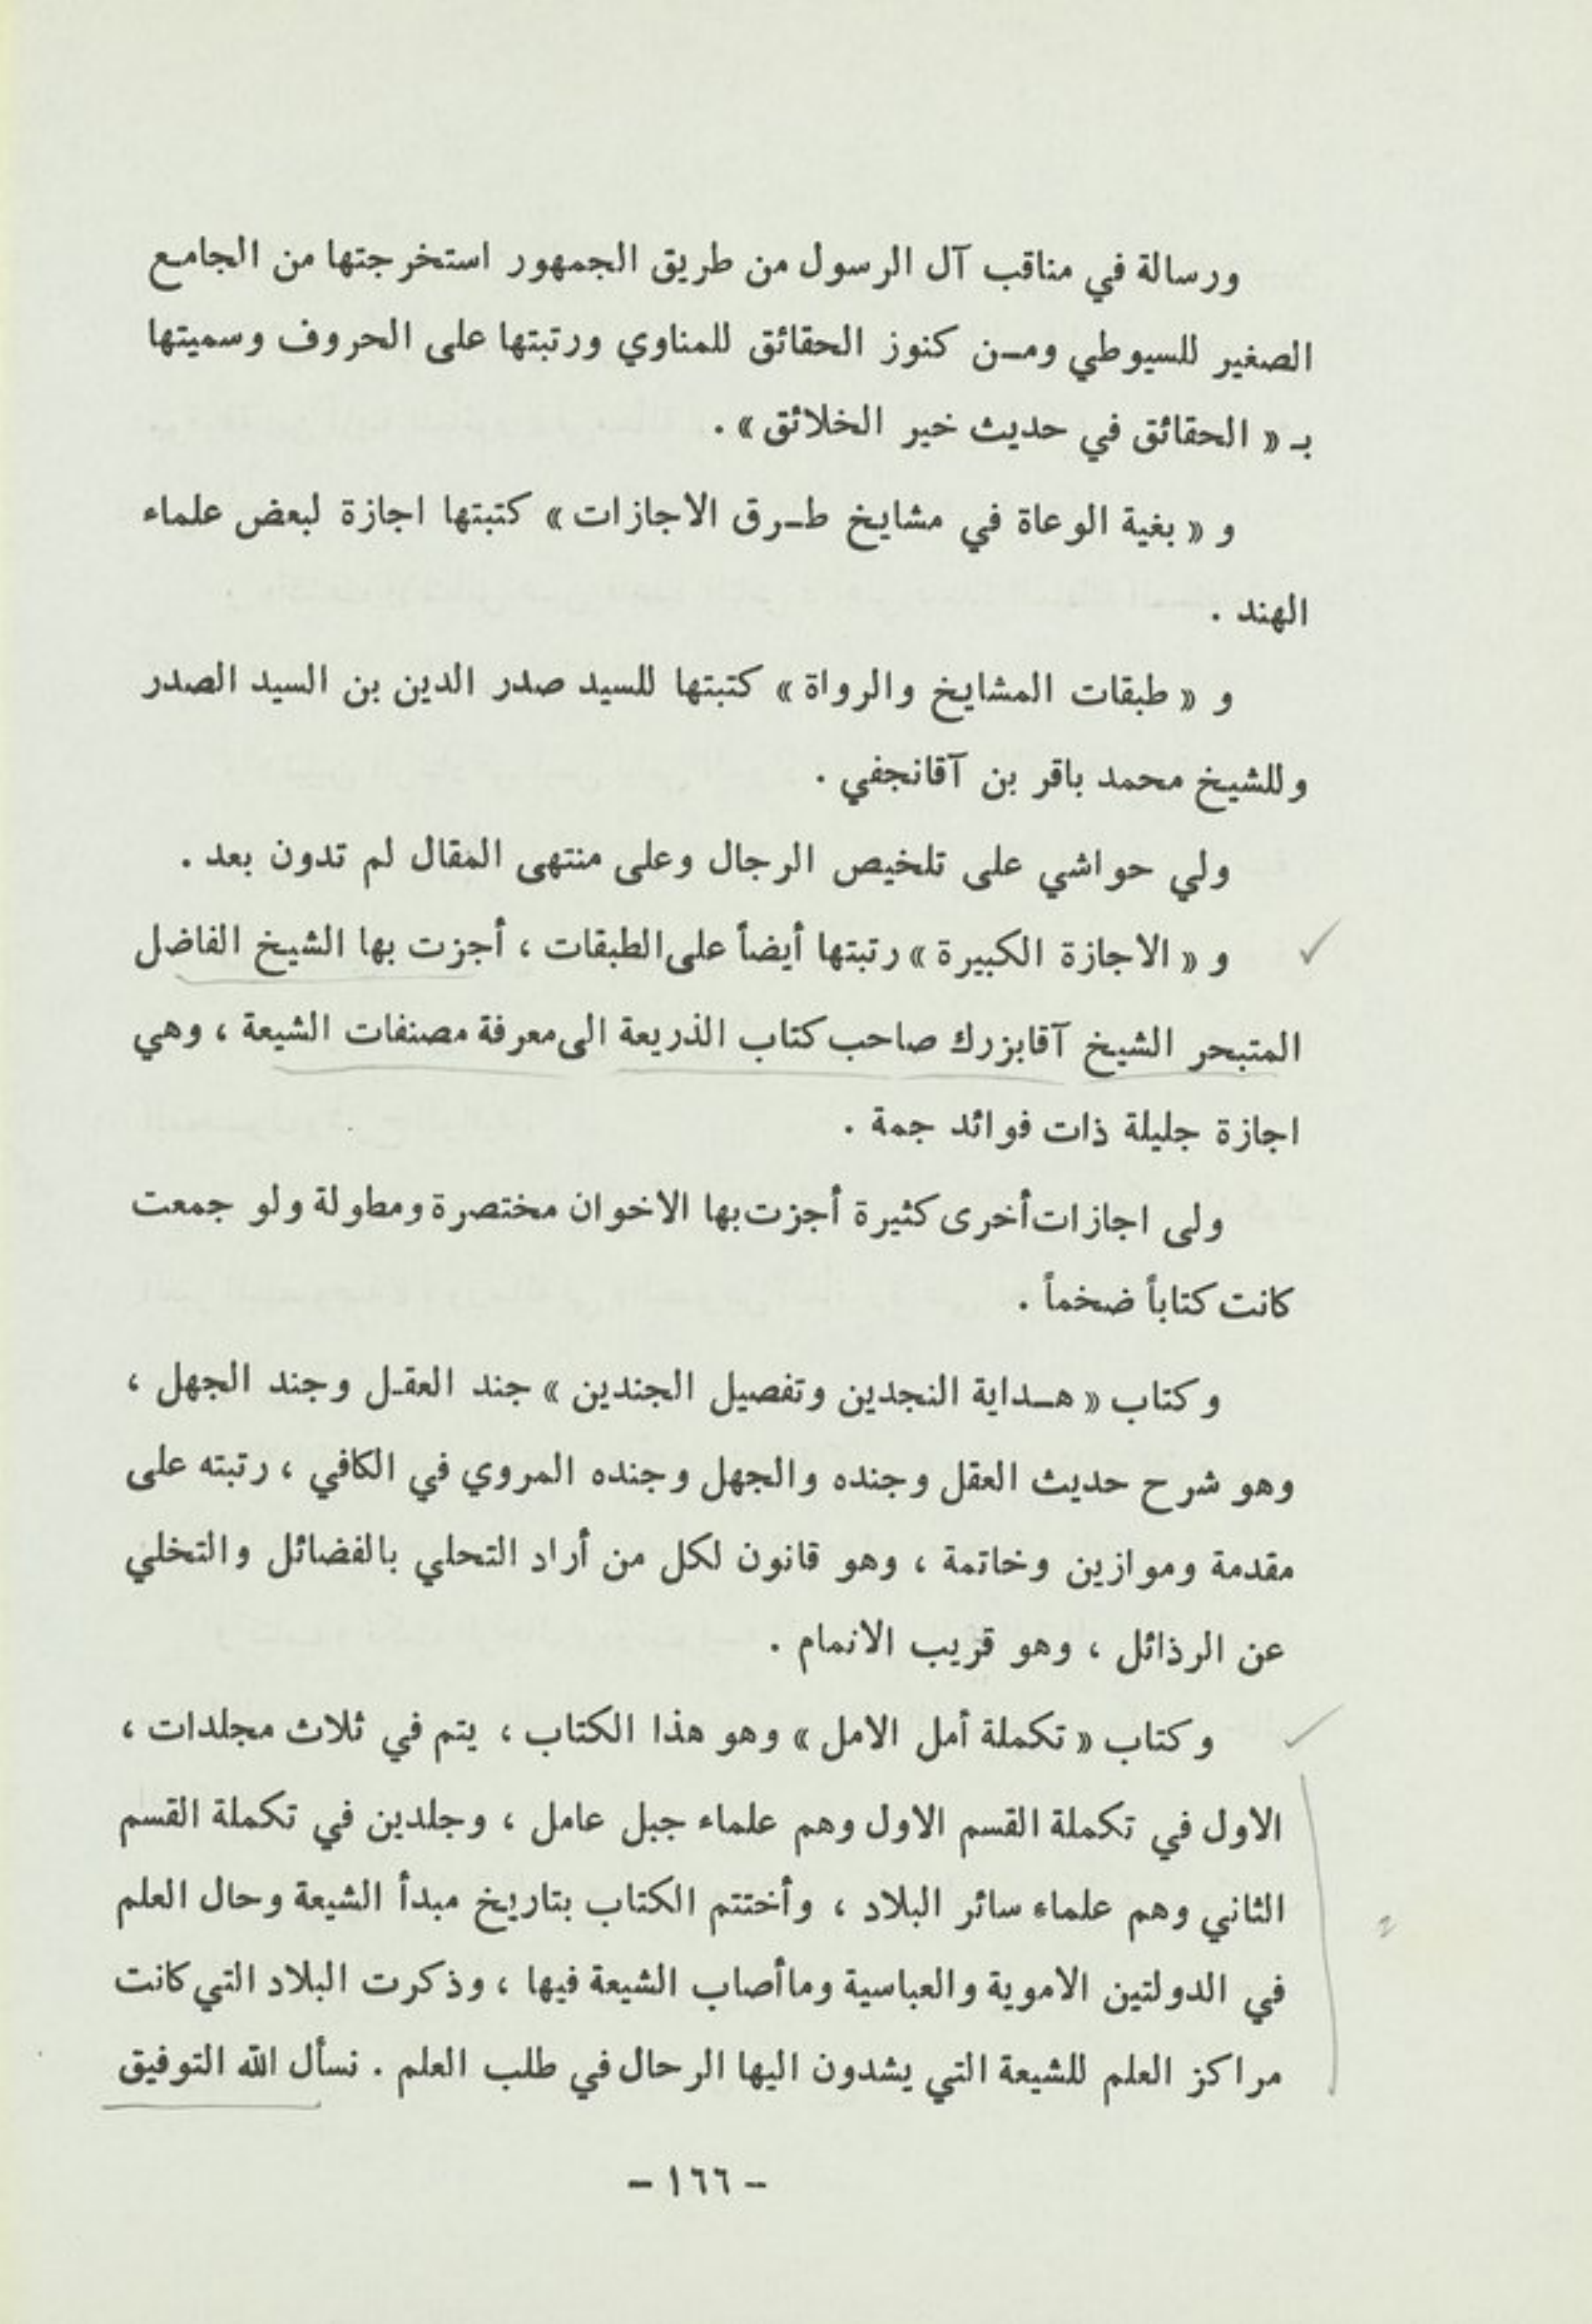 ورسالة في مناقب آل الرسول من طريق الجمهور استخرجتها من الجامع
الصغير للسيوطي ومـن كنوز الحقائق للمناوي ورتبتها على الحروف وسميتها
بـ « الحقائق في حديث خير الخلائق » .
و « بغية الوعاة في مشايخ طـرق الاجازات » كتبتها اجازة لبعض علماء
الهند .
و « طبقات المشايخ والرواة » كتبتها للسيد صدر الدين بن السيد الصدر
وللشيخ محمد باقر بن آقانجفي .
ولي حواشي على تلخيص الرجال وعلى منتهى المقال لم تدون بعد .
و « الاجازة الكبيرة » رتبتها أيضاً على الطبقات ، أجزت بها الشيخ الفاضل
المتبحر الشيخ آقابزرك صاحب كتاب الذريعة الى معرفة مصنفات الشيعة ، وهي
اجازة جليلة ذات فوائد جمة .
ولى اجازات أخرى كثيرة أجزت بها الاخوان مختصرة ومطولة ولو جمعت
كانت كتاباً ضخماً .
وكتاب « هـداية النجدين وتفصيل الجندين » جند العقـل وجند الجهل ،
وهو شرح حديث العقل وجنده والجهل وجنده المروي في الكافي ، رتبته على
مقدمة وموازين وخاتمة ، وهو قانون لكل من أراد التحلي بالفضائل والتخلي
عن الرذائل ، وهو قريب الانمام .
وكتاب « تكملة أمل الامل » وهو هذا الكتاب ، يتم في ثلاث مجلدات ،
الاول في تكملة القسم الاول وهم علماء جبل عامل ، وجلدين في تكملة القسم
الثاني وهم علماء سائر البلاد ، وأختتم الكتاب بتاريخ مبدأ الشيعة وحال العلم
في الدولتين الاموية والعباسية وماأصاب الشيعة فيها ، وذكرت البلاد التي كانت
مراكز العلم للشيعة التي يشدون اليها الرحال في طلب العلم . نسأل الله التوفيق
– ١٦٦ –